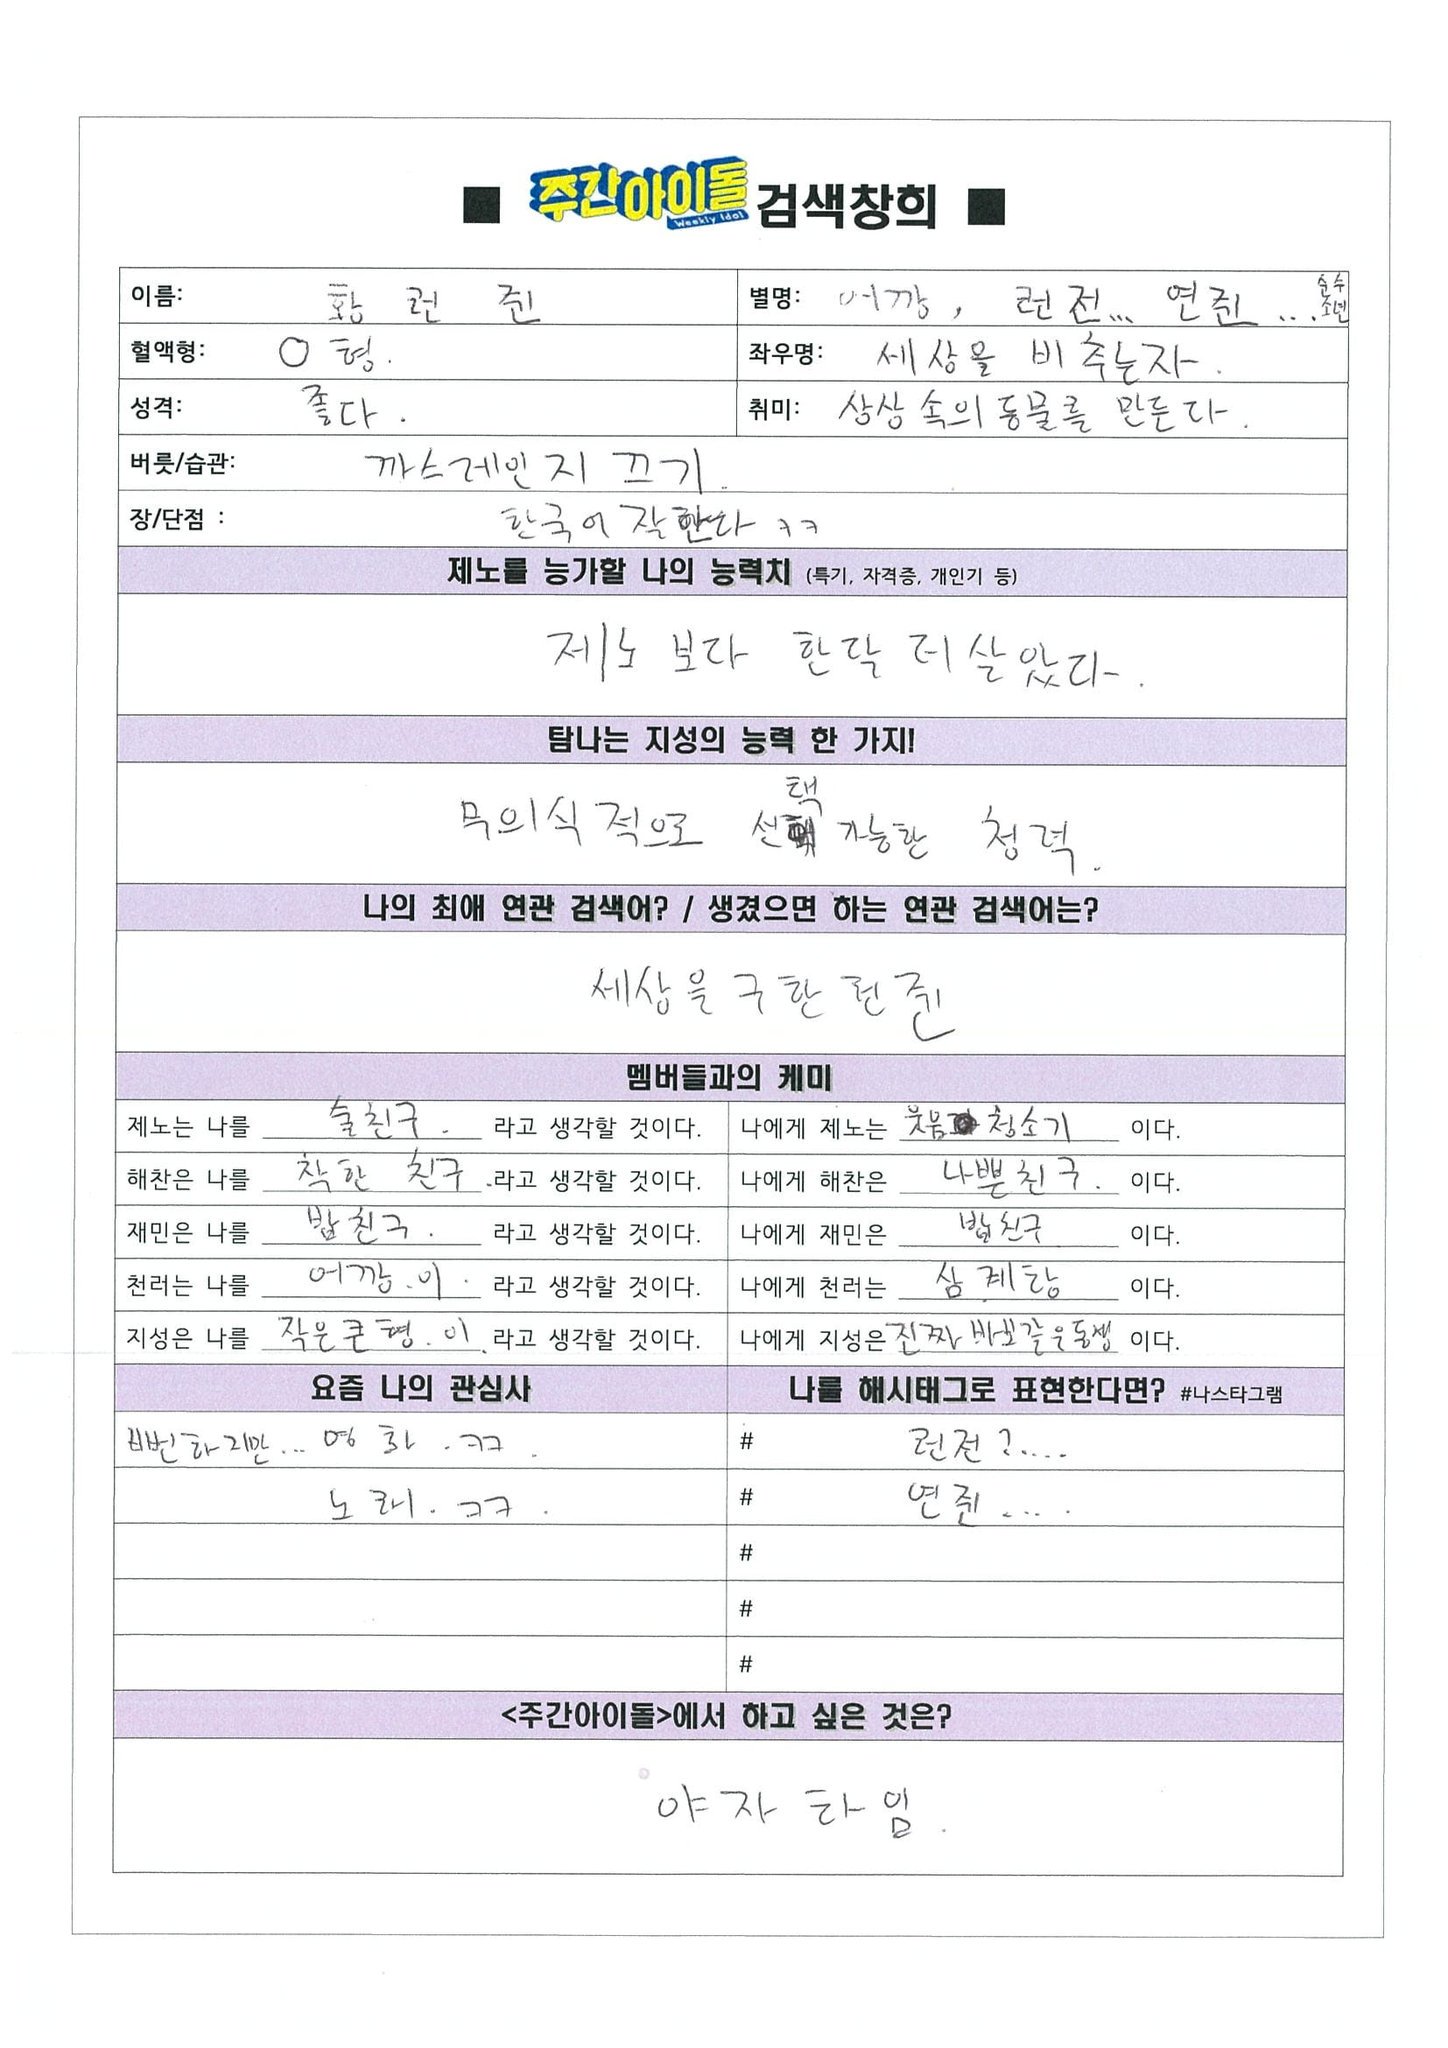 ■ 주간아이돌 Weekly Idol 검색창희 ■
이름: 황 런 쥔
별명: 어깡, 런전... 연쥔.... 순수 소년
혈액형: O 형.
좌우명: 세상을 비추는자.
성격: 좋다.
취미: 상상 속의 동물를 만든다.
버릇/습관: 까스레인지 끄기.
장/단점 : 한국어 잘한다 ㅋㅋ
제노를 능가할 나의 능력치 (특기, 자격증, 개인기 등)
제노 보다 한달 더 살았다.
탐나는 지성의 능력 한 가지!
무의식적으로 선택 가능한 청력.
나의 최애 연관 검색어? / 생겼으면 하는 연관 검색어는?
세상을 구한 런쥔
멤버들과의 케미
제노는 나를 술친구. 라고 생각할 것이다.
나에게 제노는 웃음 청소기 이다.
해찬은 나를 착한 친구. 라고 생각할 것이다.
나에게 해찬은 나쁜친구. 이다.
재민은 나를 밥친구. 라고 생각할 것이다.
나에게 재민은 밥친구 이다.
천러는 나를 어깡.이. 라고 생각할 것이다.
나에게 천러는 삼계탕 이다.
지성은 나를 작은큰형.이. 라고 생각할 것이다.
나에게 지성은 진짜 바보같은동생 이다.
요즘 나의 관심사
나를 해시태그로 표현한다면? #나스타그램
뻔하지만... 영화. ㅋㅋ.
# 런전?....
노래. ㅋㅋ.
# 연쥔.....
#
#
#
<주간아이돌>에서 하고 싶은 것은?
야자타임.